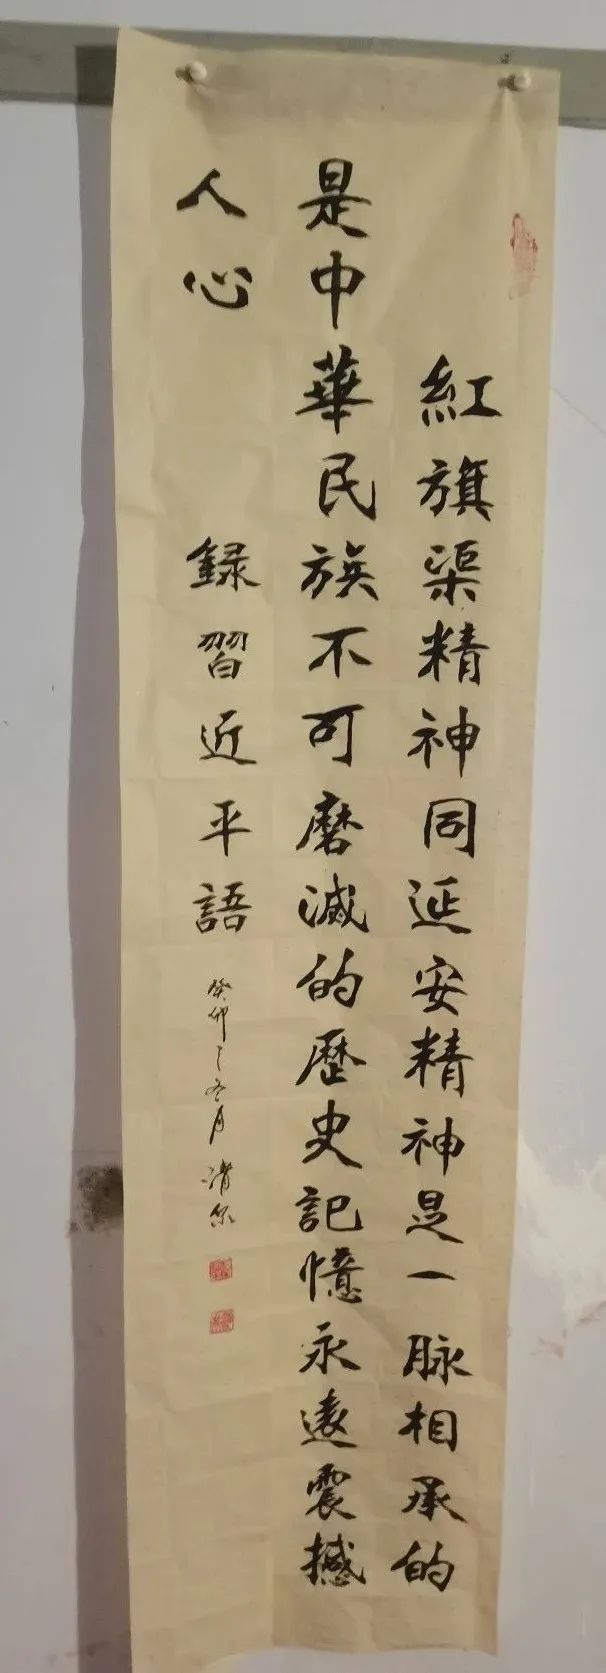 紅旗渠精神同延安精神是一脉相承的
是中華民族不可磨滅的歷史記憶永遠震撼
人心 録習近平語 癸卯之冬月